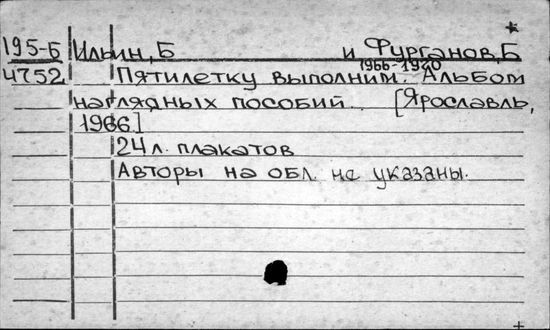 195-Б Ильин, Б и Фурганов, Б
1966-1970
4752 Пятилетку выполним. Альбом
наглядных пособий. [Ярославль,
1966.]
24 л. плакатов
Авторы на обл. не указаны.